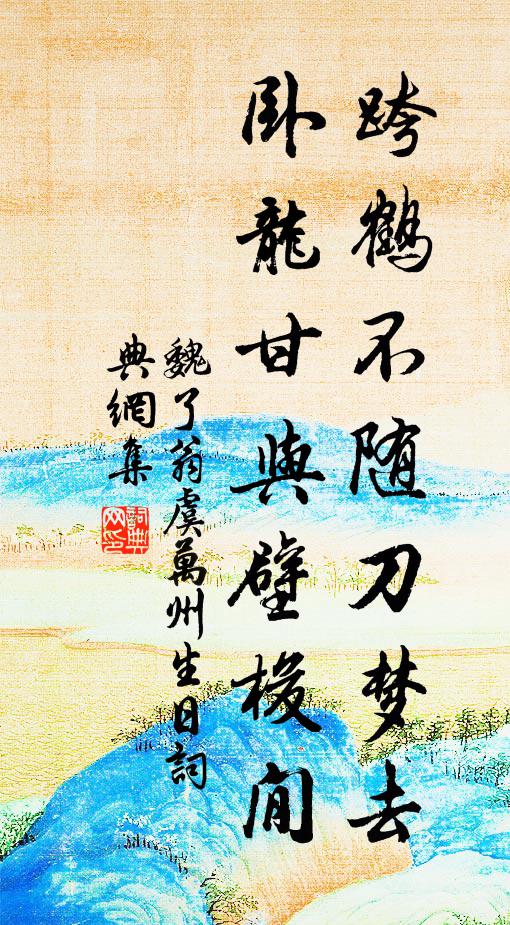 跨鶴不随刀梦去
卧龍甘與壁梭閒
魏了翁虞萬州生日詞
典網集
詞典
网印